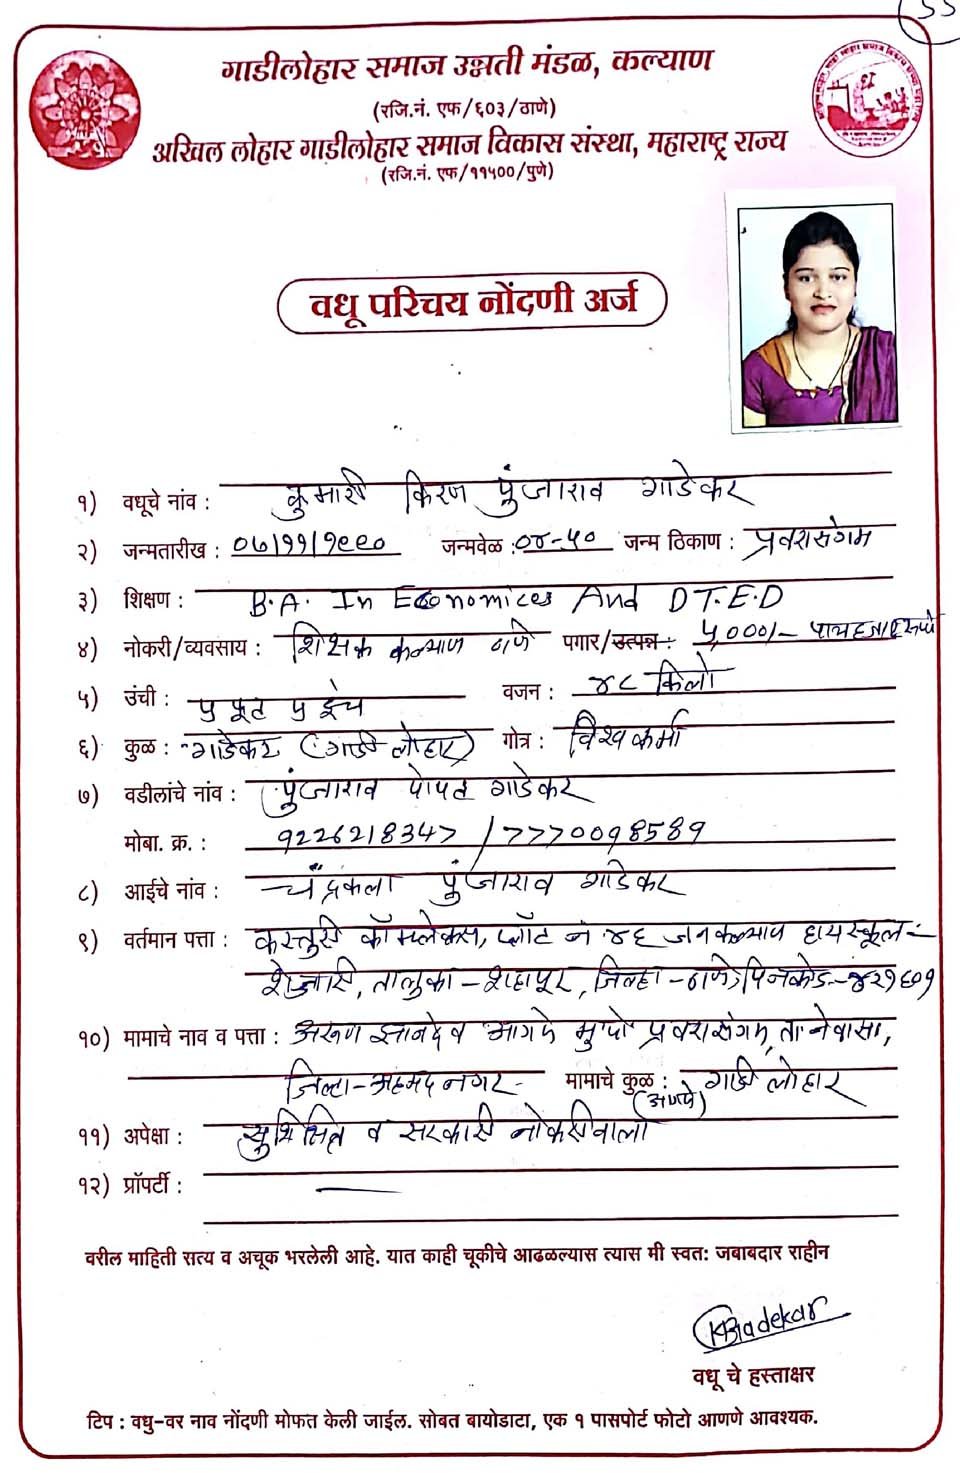 33
गाडीलोहार समाज उन्नती मंडळ, कल्याण
(रजि.नं. एफ/६०३/ठाणे)
अखिल लोहार गाडीलोहार समाज विकास संस्था, महाराष्ट्र राज्य
(रजि.नं. एफ/११५००/पुणे)
वधू परिचय नोंदणी अर्ज
१) वधूचे नांव : कुमारी किरण पुंजाराव गाडेकर
२) जन्मतारीख : ०७/११/१९९० जन्मवेळ : ०४-५० जन्म ठिकाण : प्रवरासंगम
३) शिक्षण : B.A. In Economices And D T.E.D
४) नोकरी/व्यवसाय : शिक्षक कल्याण ठाणे पगार/उत्पन्न : ५,०००/- पाचहजार रुपये
५) उंची : ५ फूट ५ इंच वजन : ४८ किलो
६) कुळ : गाडेकर (गाडी लोहार) गोत्र : विश्वकर्मा
७) वडीलांचे नांव : पुंजाराव पोपट गाडेकर
मोबा. क्र. : 9226218347 / 7770098589
८) आईचे नांव : चंद्रकला पुंजाराव गाडेकर
९) वर्तमान पत्ता : कस्तुरी कॉम्प्लेक्स, प्लॉट नं ४६ जनकल्याण हायस्कूल-
शेजारी, तालुका - शहापूर, जिल्हा - ठाणे, पिनकोड - ४२१६०१
१०) मामाचे नाव व पत्ता : अरुण ज्ञानदेव आगणे मु पो प्रवरासंगम, ता नेवासा,
जिल्हा - अहमदनगर - मामाचे कुळ : गाडी लोहार
११) अपेक्षा : सुशिक्षित व सरकारी नोकरीवाला
१२) प्रॉपर्टी : —
वरील माहिती सत्य व अचूक भरलेली आहे. यात काही चूकीचे आढळल्यास त्यास मी स्वत: जबाबदार राहीन
KBGadekar
वधू चे हस्ताक्षर
टिप : वधु-वर नाव नोंदणी मोफत केली जाईल. सोबत बायोडाटा, एक १ पासपोर्ट फोटो आणणे आवश्यक.